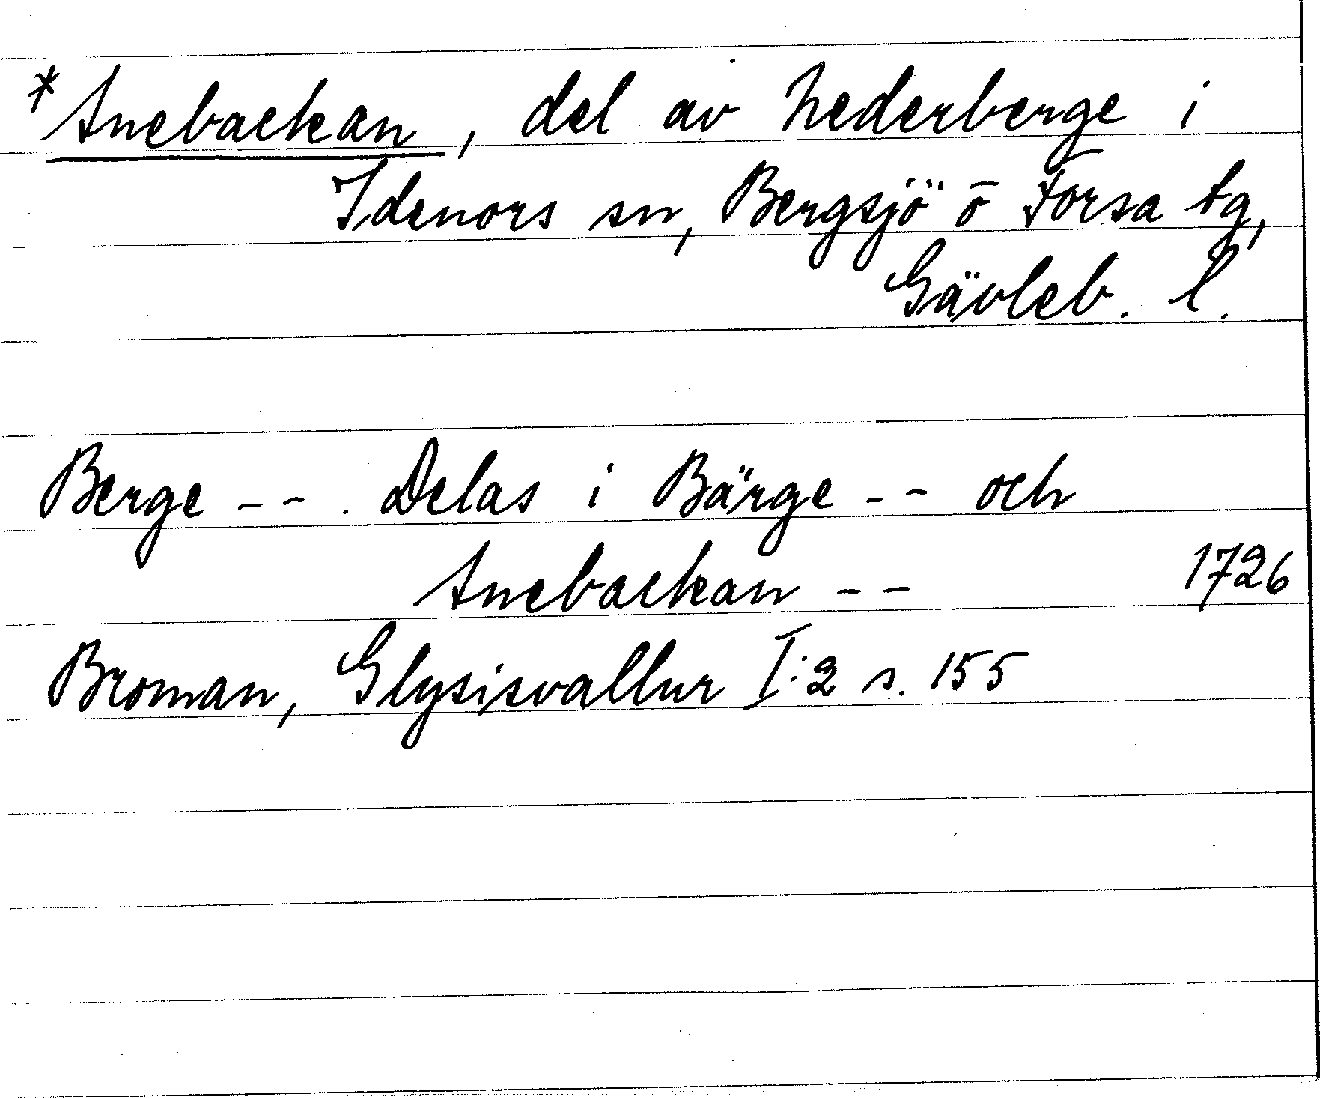 *Anebackan, del av Nederberge i
Idenors sn, Bergsjö o Forsa tg,
Gävleb. l.
Berge -- . Delas i Bärge -- och
Anebackan -- 1726
Broman, Glysisvallur I:2 s. 155